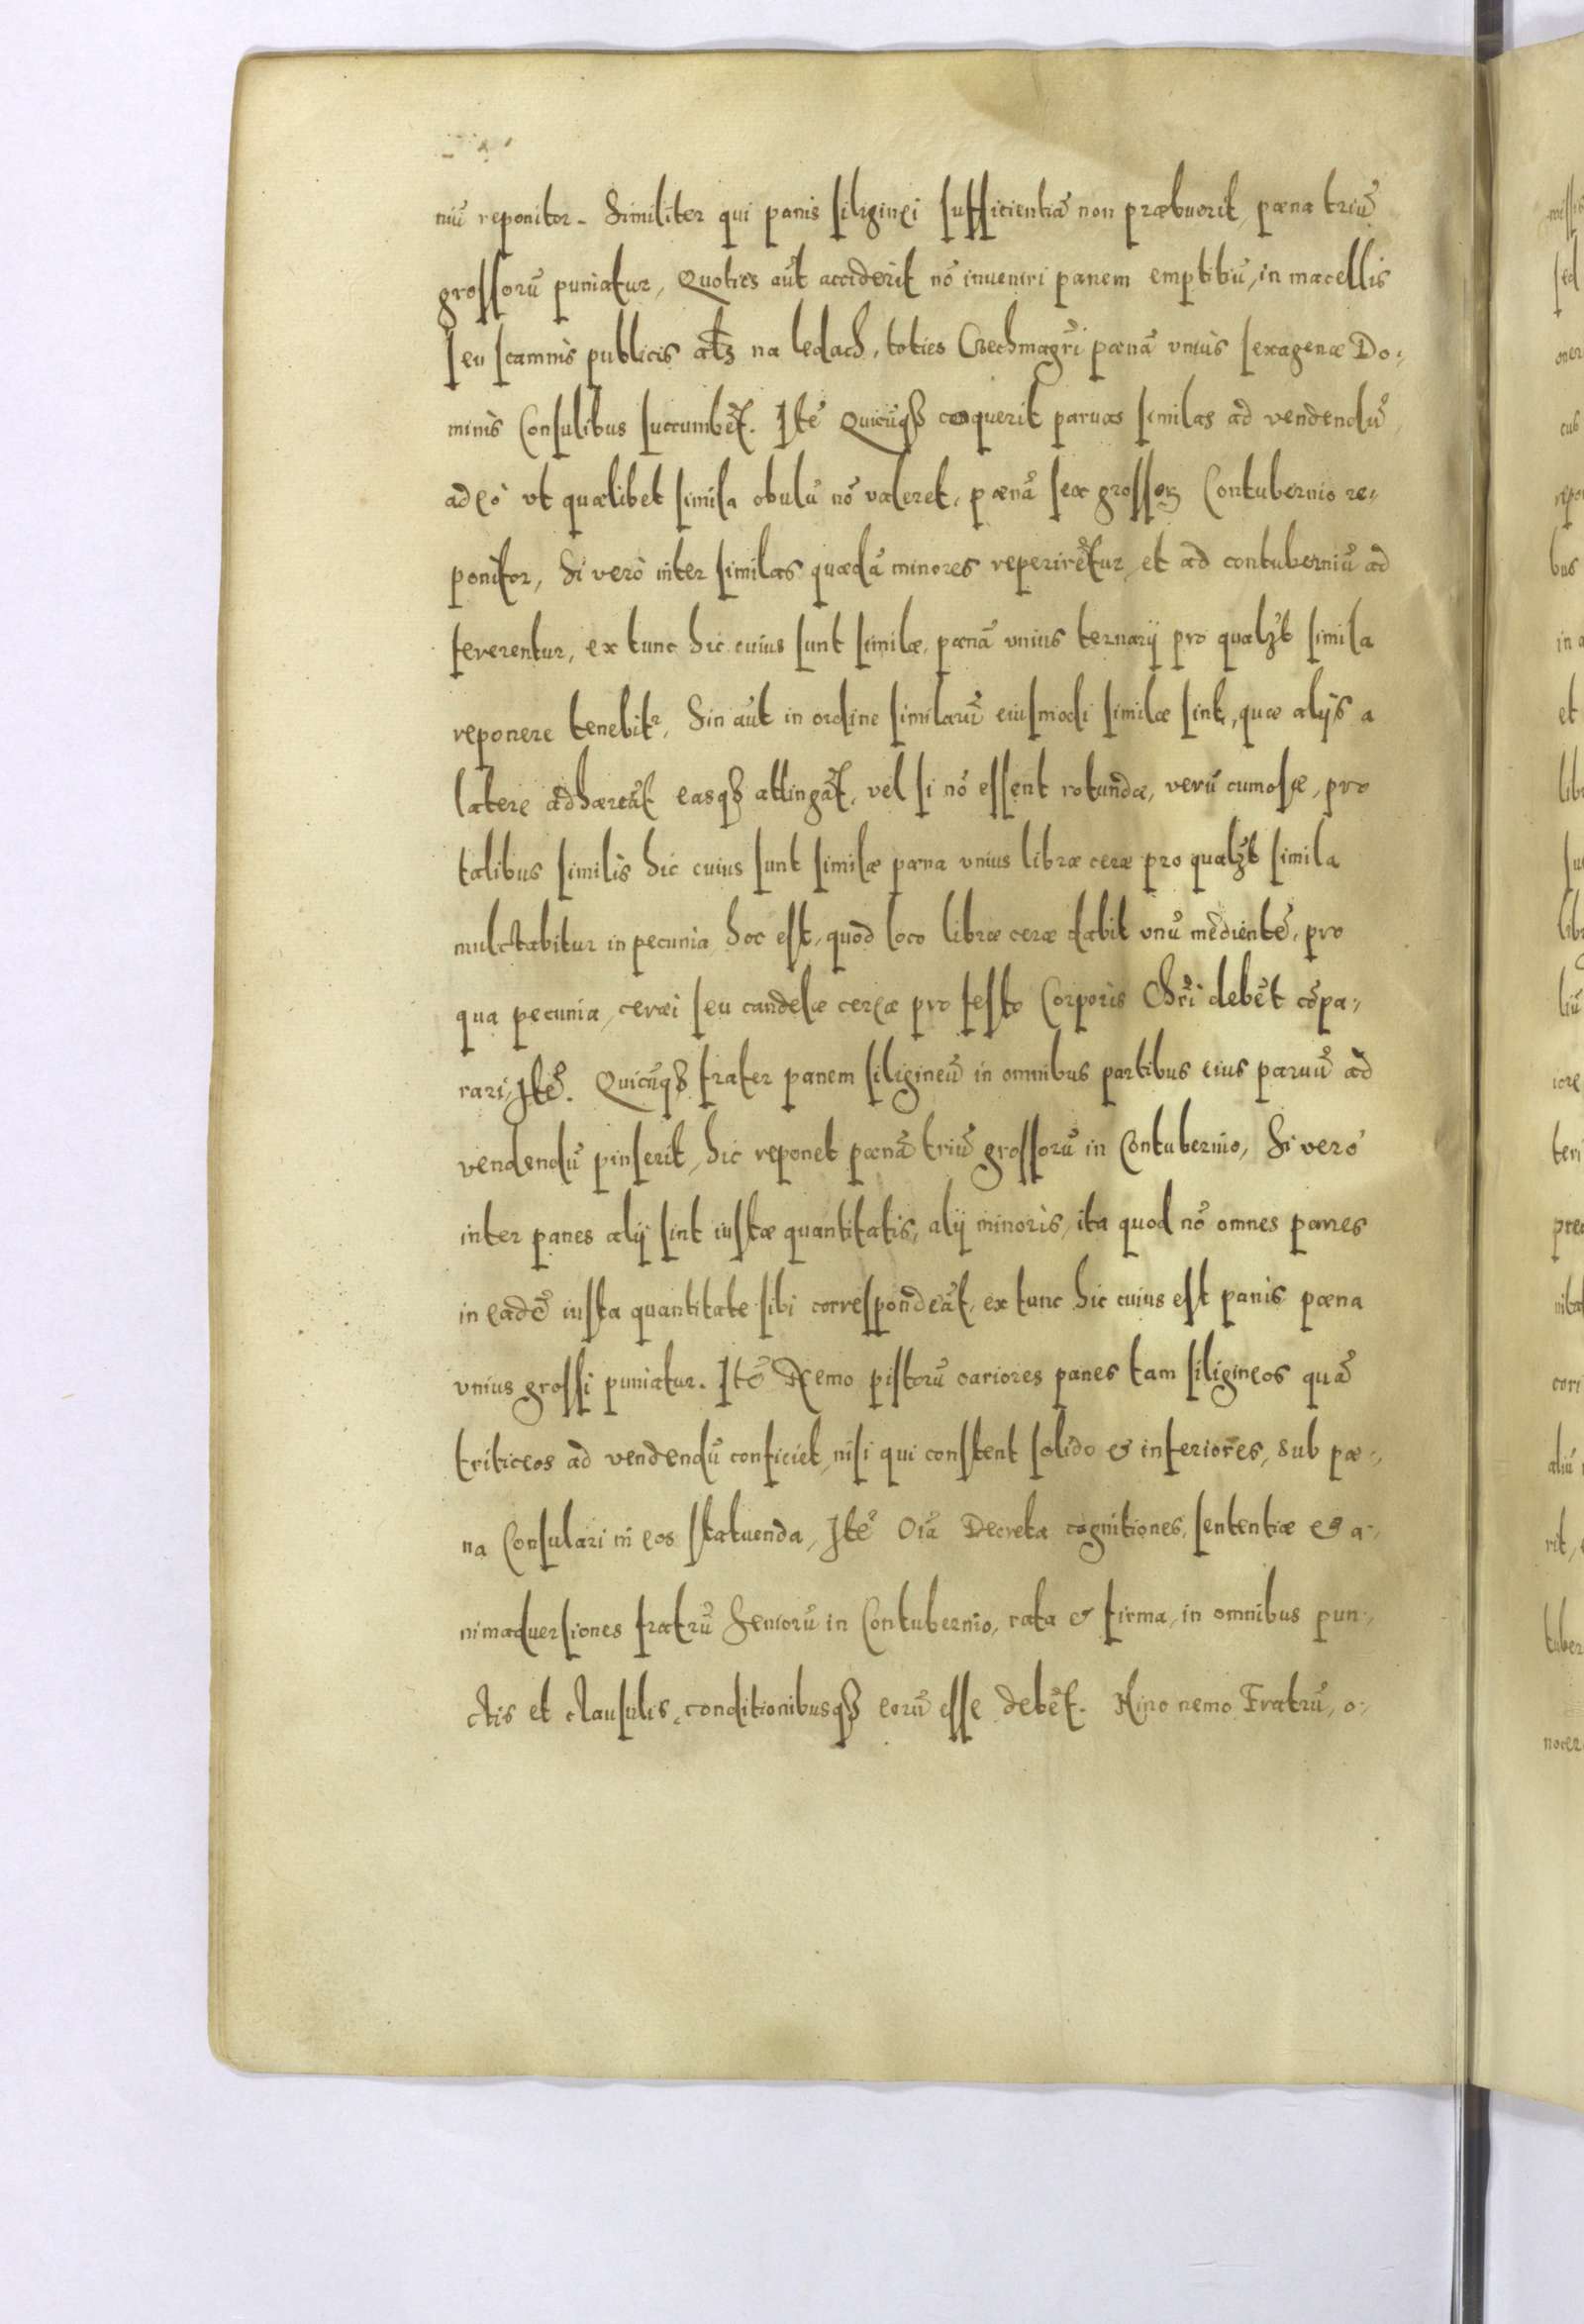 niũ reponitor. Similiter qui panis siliginei sufficientiã non præbuerit, pæna triũ
grossorũ puniatur, Quoties aũt acciderit nõ inueniri panem emptitiũ, in macellis
seu scamnis publicis al̃s na ledach, toties Czechmagr̃i pænã vnius sexagenæ Do:
minis Consulibus succumbẽt. Itẽ Quicũqȝ coquerit paruas similas ad vendendũ,
adeò vt quælibet simila obulũ nõ valeret, pænã sex grossoꝝ Contubernio re:
ponitor, Si verò inter similas quædã minores reperirẽtur, et ad contuberniũ ad
ferrentur, ex tunc hic cuius sunt similæ, pænã vnius ternarij pro qualȝb simila
reponere tenebit̃, Sin aũt in ordine similarũ eiusmodi similæ sint, quæ alijs a
latere adhæreãt easqȝ attingãt, vel si nõ essent rotundæ, verũ cumosæ, pro
talibus similis hic cuius sunt similæ pæna vnius libræ ceræ pro qualȝb simila
mulctabitur in pecunia, hoc est, quod loco libræ ceræ dabit vnũ medientẽ, pro
qua pecunia, cerei seu candelæ cereæ pro festo Corporis Chr̃i debẽt cõpa:
rari, Itẽ. Quicũqȝ frater panem siligineũ in omnibus partibus eius paruũ ad
vendendũ pinserit, hic reponet pænã triũ grossorũ in Contubernio, Si vero
inter panes alij sint iustæ quantitatis, alij minoris, ita quod nõ omnes panes
in eadẽ iusta quantitate sibi correspondeãt, ex tunc hic cuius est panis pæna
vnius grossi puniatur. Itẽ Nemo pistorũ cariores panes tam siligineos quã
triticeos ad vendendũ conficiet, nisi qui constent solido & inferiores, sub pæ:
na Consulari in eos statuenda, Itẽ Oĩa Decreta cognitiones, sententiæ & a:
nimaduersiones fratrũ Seniorũ in Contubernio, rata & firma, in omnibus pun:
ctis et clausulis, conditionibusqȝ eorũ esse debẽt. Hinc nemo Fratrũ, o: